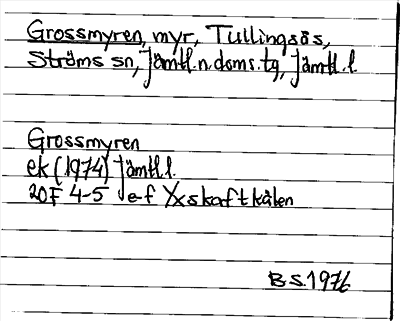 Grossmyren, myr, Tullingsås,
Ströms sn, Jämtl.n.doms.tg, Jämtl.l.
Grossmyren
ek (1974) Jämtl.l.
20F 4-5 e-f Yxskaftkälen
B.S. 1976